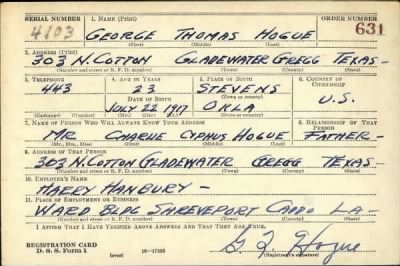 SERIAL NUMBER 1. NAME (Print) ORDER NUMBER
4103 GEORGE THOMAS HOGUE 631
(First) (Middle) (Last)
2. ADDRESS (Print)
303 N. COTTON GLADEWATER GREGG TEXAS-
(Number and street or R. F. D. number) (Town) (County) (State)
3. TELEPHONE 4. AGE IN YEARS 5. PLACE OF BIRTH 6. COUNTRY OF CITIZENSHIP
443 23 STEVENS
(Town or county)
DATE OF BIRTH
JULY 22 1917 OKLA U.S.
(Mo.) (Day) (Yr.) (State or country)
7. NAME OF PERSON WHO WILL ALWAYS KNOW YOUR ADDRESS 8. RELATIONSHIP OF THAT PERSON
MR CHARLIE CYPHUS HOGUE FATHER-
(Mr., Mrs., Miss) (First) (Middle) (Last)
9. ADDRESS OF THAT PERSON
303 N. COTTON GLADEWATER GREGG TEXAS-
(Number and street or R. F. D. number) (Town) (County) (State)
10. EMPLOYER'S NAME
HARRY HANBURY-
11. PLACE OF EMPLOYMENT OR BUSINESS
WARD BLDG SHREVEPORT CADDO LA-
(Number and street or R. F. D. number) (Town) (County) (State)
I AFFIRM THAT I HAVE VERIFIED ABOVE ANSWERS AND THAT THEY ARE TRUE.
REGISTRATION CARD
D. S. S. Form 1 (over) 16-17105 G. T. Hogue